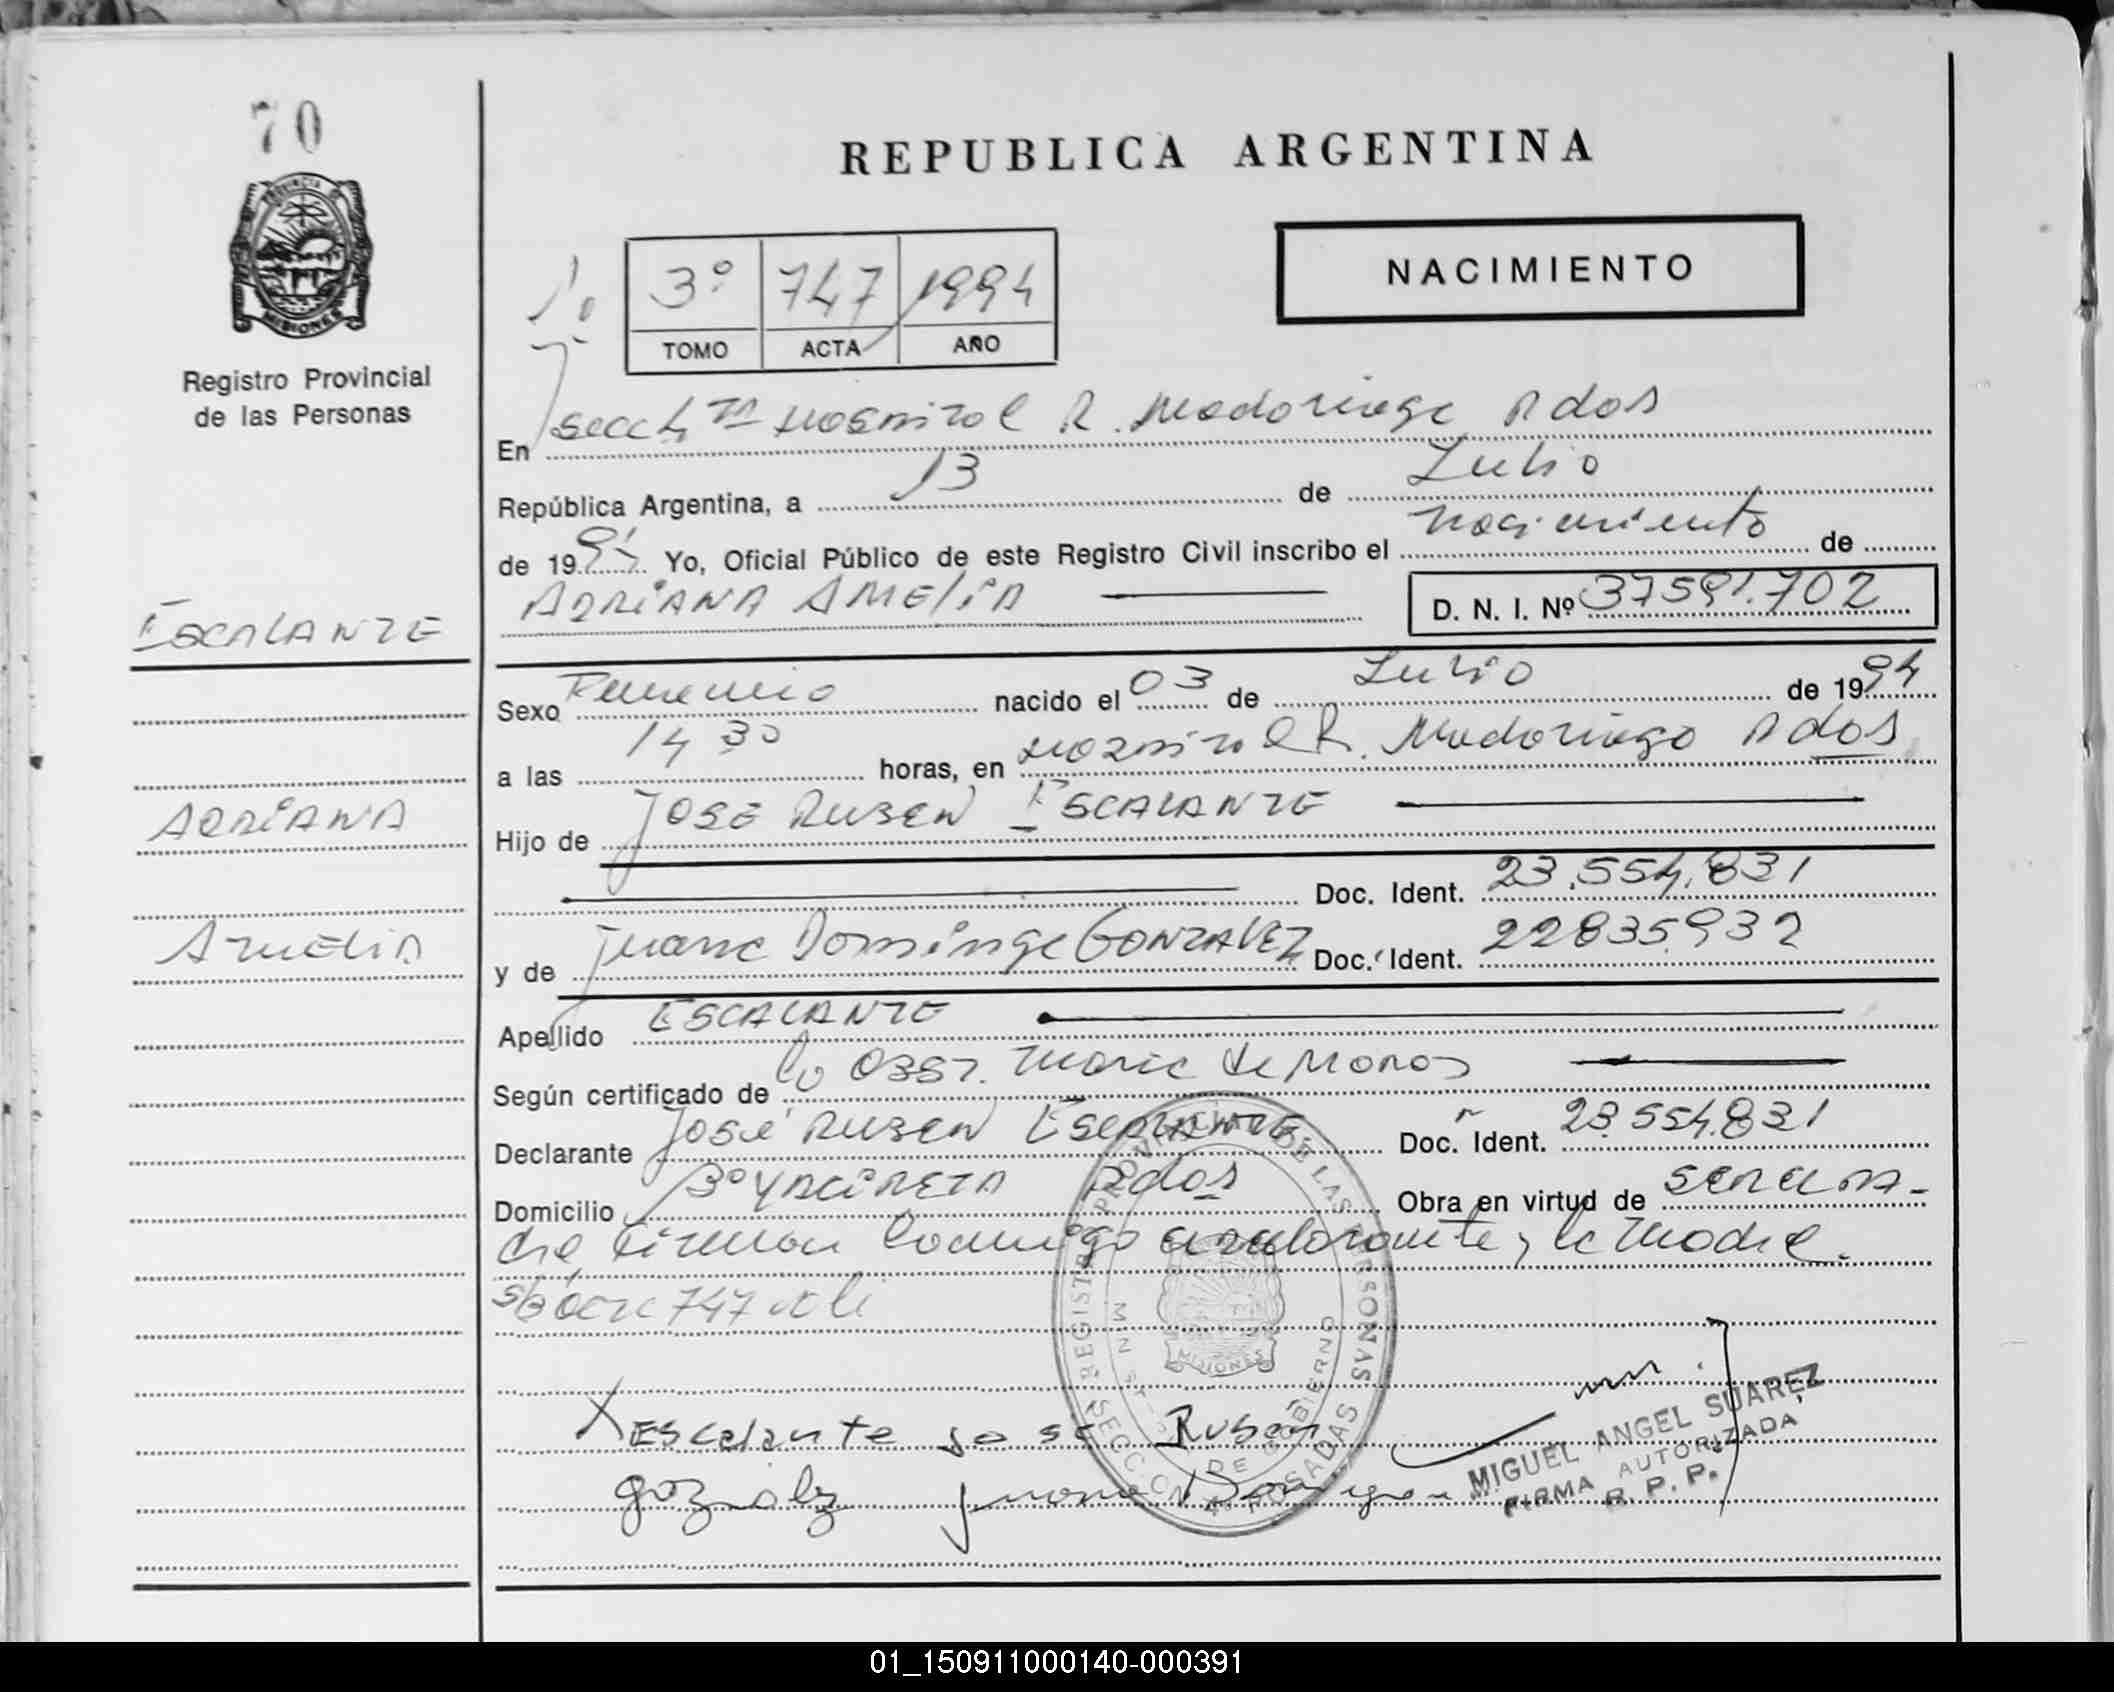 70
REPUBLICA ARGENTINA
PROVINCIA DE
MISIONES
Registro Provincial
de las Personas
3º 747 1994
TOMO ACTA AÑO
NACIMIENTO
En Secc 4ta Hospital R. Madariaga Pdas
República Argentina, a 13 de Julio
de 1994 Yo, Oficial Público de este Registro Civil inscribo el nacimiento de
ADRIANA AMELIA
D. N. I. Nº 37591.702
ESCALANTE
Sexo Femenino nacido el 03 de Julio de 1994
a las 14 30 horas, en Hospital R. Madariaga Pdas
ADRIANA
Hijo de JOSE RUBEN ESCALANTE
Doc. Ident. 23.554.831
AMELIA
y de Juana Dominga GONZALEZ Doc. Ident. 22835932
Apellido ESCALANTE
Según certificado de la Obst. Maria de
Declarante José RUBEN ESCALANTE Doc. Ident. 23.554.831
Domicilio Bº YACIRETA Pdas Obra en virtud de
Firman conmigo el declarante y la madre.
747
X Escalante José Ruben
goznalez juana Dominga
REGISTRO PROVINCIAL DE LAS PERSONAS
MINISTERIO DE GOBIERNO
MISIONES
SECCION 4ª POSADAS
MIGUEL ANGEL SUAREZ
FIRMA AUTORIZADA
R. P. P.
01_150911000140-000391